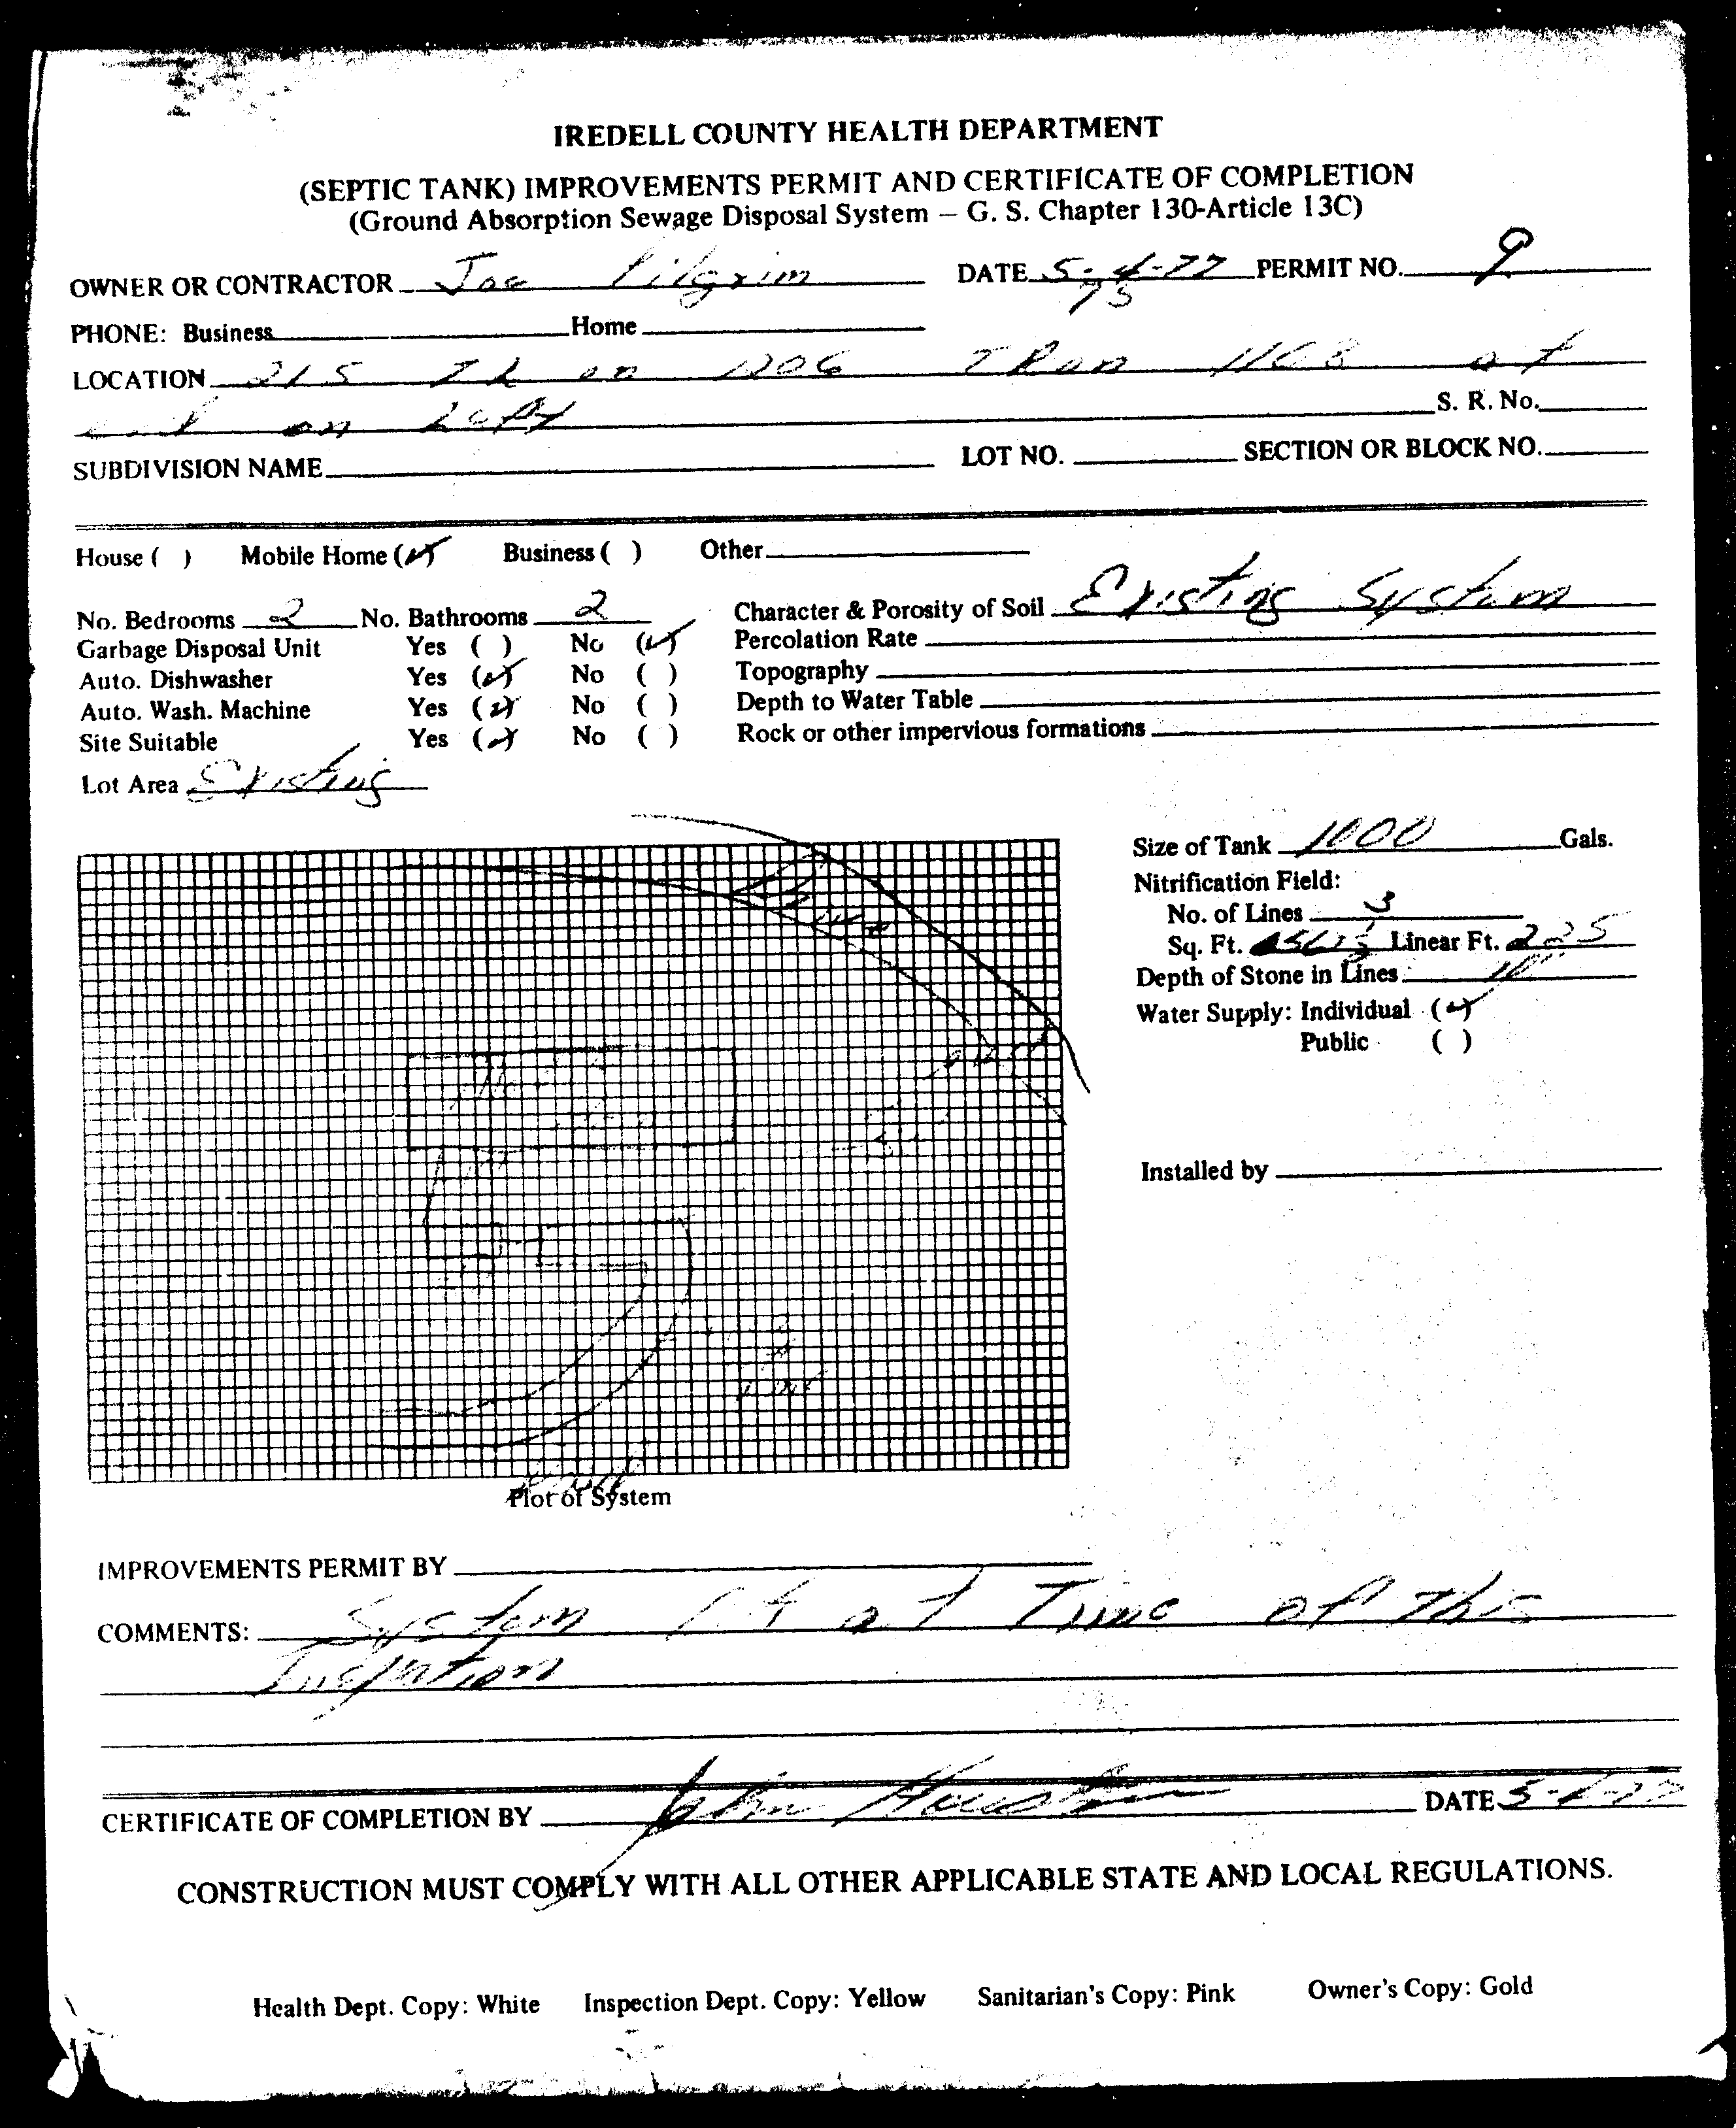 IREDELL COUNTY HEALTH DEPARTMENT
(SEPTIC TANK) IMPROVEMENTS PERMIT AND CERTIFICATE OF COMPLETION
(Ground Absorption Sewage Disposal System – G. S. Chapter 130-Article 13C)
OWNER OR CONTRACTOR Joe Pilgrim DATE 5-4-77 PERMIT NO. 9
75
PHONE: Business Home
LOCATION 215 TL on 1206 TR on 1168 at
end on Left S. R. No.
SUBDIVISION NAME LOT NO. SECTION OR BLOCK NO.
House ( ) Mobile Home (✓) Business ( ) Other
No. Bedrooms 2 No. Bathrooms 2 Character & Porosity of Soil Existing System
Garbage Disposal Unit Yes ( ) No (✓) Percolation Rate
Auto. Dishwasher Yes (✓) No ( ) Topography
Auto. Wash. Machine Yes (✓) No ( ) Depth to Water Table
Site Suitable Yes (✓) No ( ) Rock or other impervious formations
Lot Area Existing
Size of Tank 1000 Gals.
Nitrification Field:
No. of Lines 3
Sq. Ft. Linear Ft. 225
Depth of Stone in Lines 10"
Water Supply: Individual (✓)
Public ( )
Installed by
Plot of System
IMPROVEMENTS PERMIT BY
COMMENTS: System at Time of this
Inspection
CERTIFICATE OF COMPLETION BY John Houston DATE 5-4-77
CONSTRUCTION MUST COMPLY WITH ALL OTHER APPLICABLE STATE AND LOCAL REGULATIONS.
Health Dept. Copy: White Inspection Dept. Copy: Yellow Sanitarian's Copy: Pink Owner's Copy: Gold